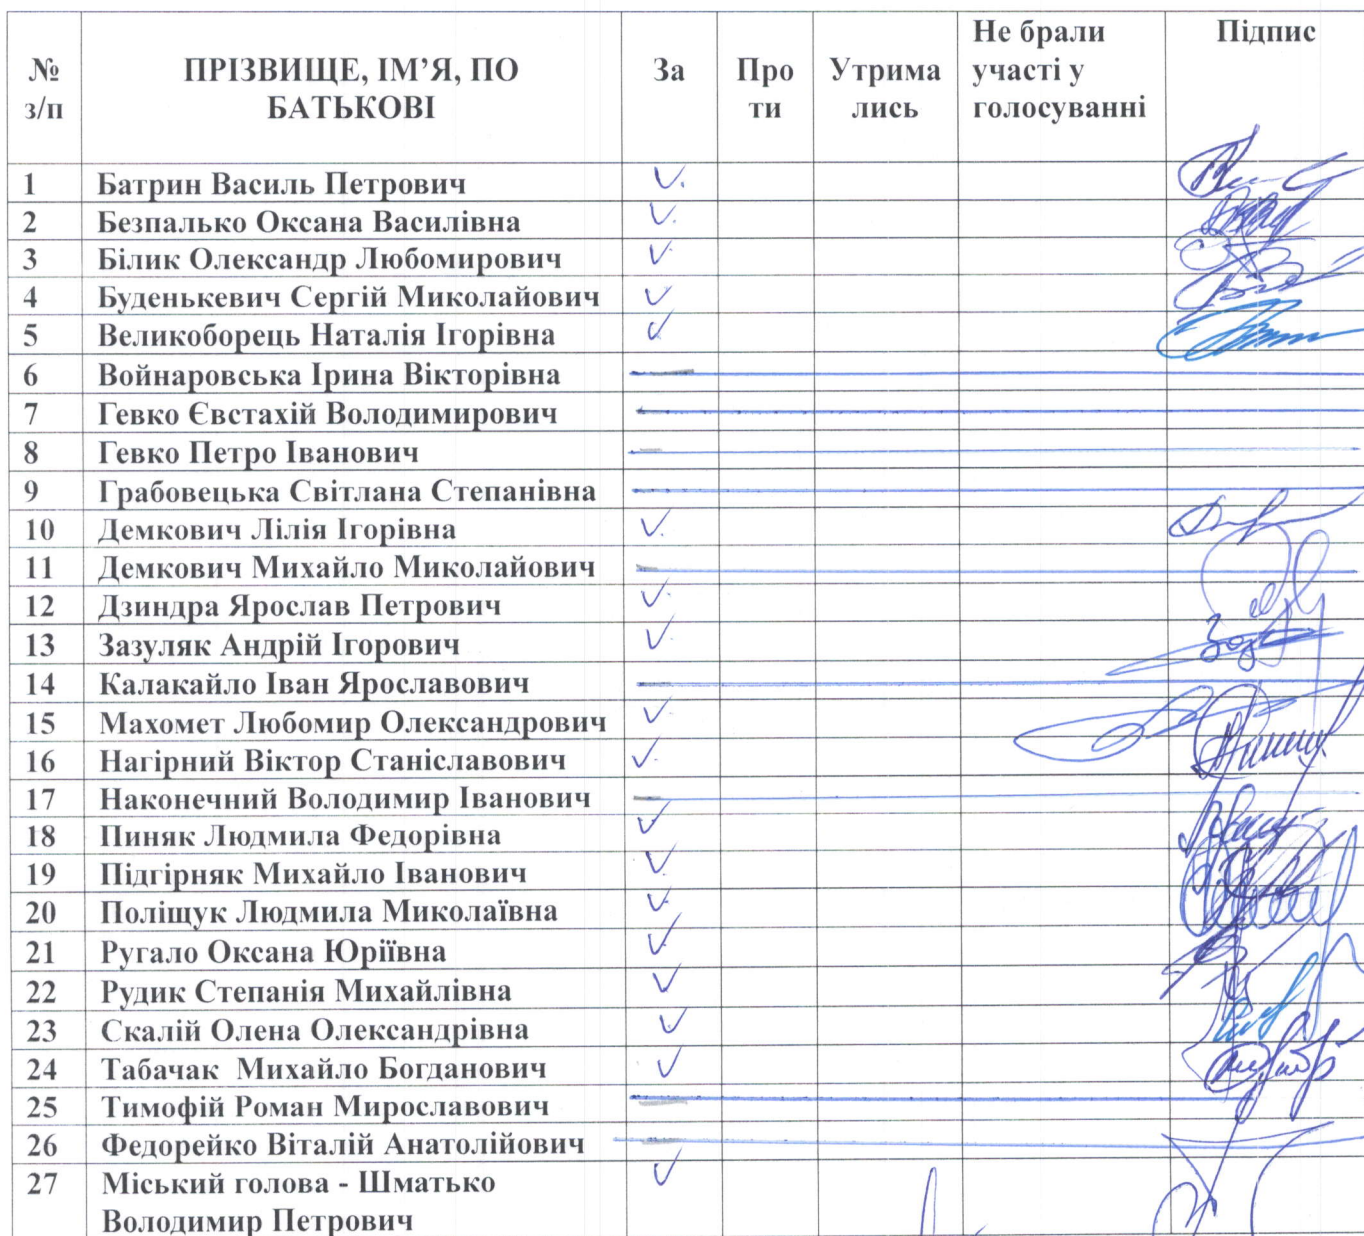 № з/п ПРІЗВИЩЕ, ІМ’Я, ПО БАТЬКОВІ За Про ти Утрима лись Не брали участі у голосуванні Підпис
1 Батрин Василь Петрович V.
2 Безпалько Оксана Василівна V.
3 Білик Олександр Любомирович V.
4 Буденькевич Сергій Миколайович V
5 Великоборець Наталія Ігорівна V
6 Войнаровська Ірина Вікторівна
7 Гевко Євстахій Володимирович
8 Гевко Петро Іванович
9 Грабовецька Світлана Степанівна
10 Демкович Лілія Ігорівна V.
11 Демкович Михайло Миколайович
12 Дзиндра Ярослав Петрович V.
13 Зазуляк Андрій Ігорович V.
14 Калакайло Іван Ярославович
15 Махомет Любомир Олександрович V.
16 Нагірний Віктор Станіславович V.
17 Наконечний Володимир Іванович
18 Пиняк Людмила Федорівна V
19 Підгірняк Михайло Іванович V.
20 Поліщук Людмила Миколаївна V.
21 Ругало Оксана Юріївна V
22 Рудик Степанія Михайлівна V
23 Скалій Олена Олександрівна V
24 Табачак Михайло Богданович V
25 Тимофій Роман Мирославович
26 Федорейко Віталій Анатолійович
27 Міський голова - Шматько V
Володимир Петрович